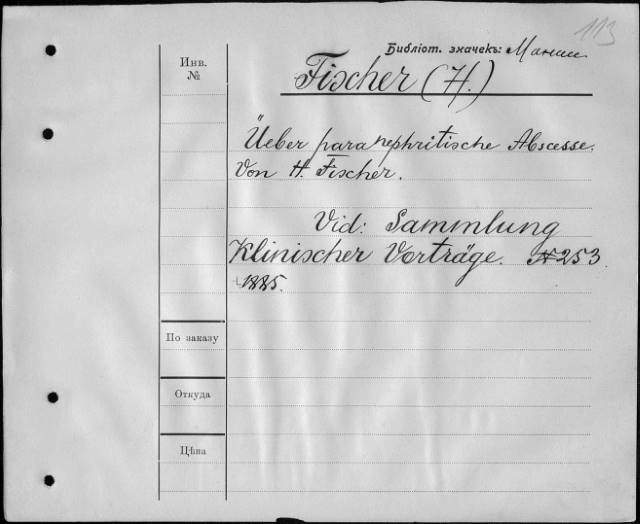 113
Библіот. значекъ:
Инв.
№
Fischer (H.)
Üeber paranephritische Abscesse.
Von H. Fischer.
Vid: Sammlung
Klinischer Vorträge. № 253
1885.
По заказу
Откуда
Цѣна